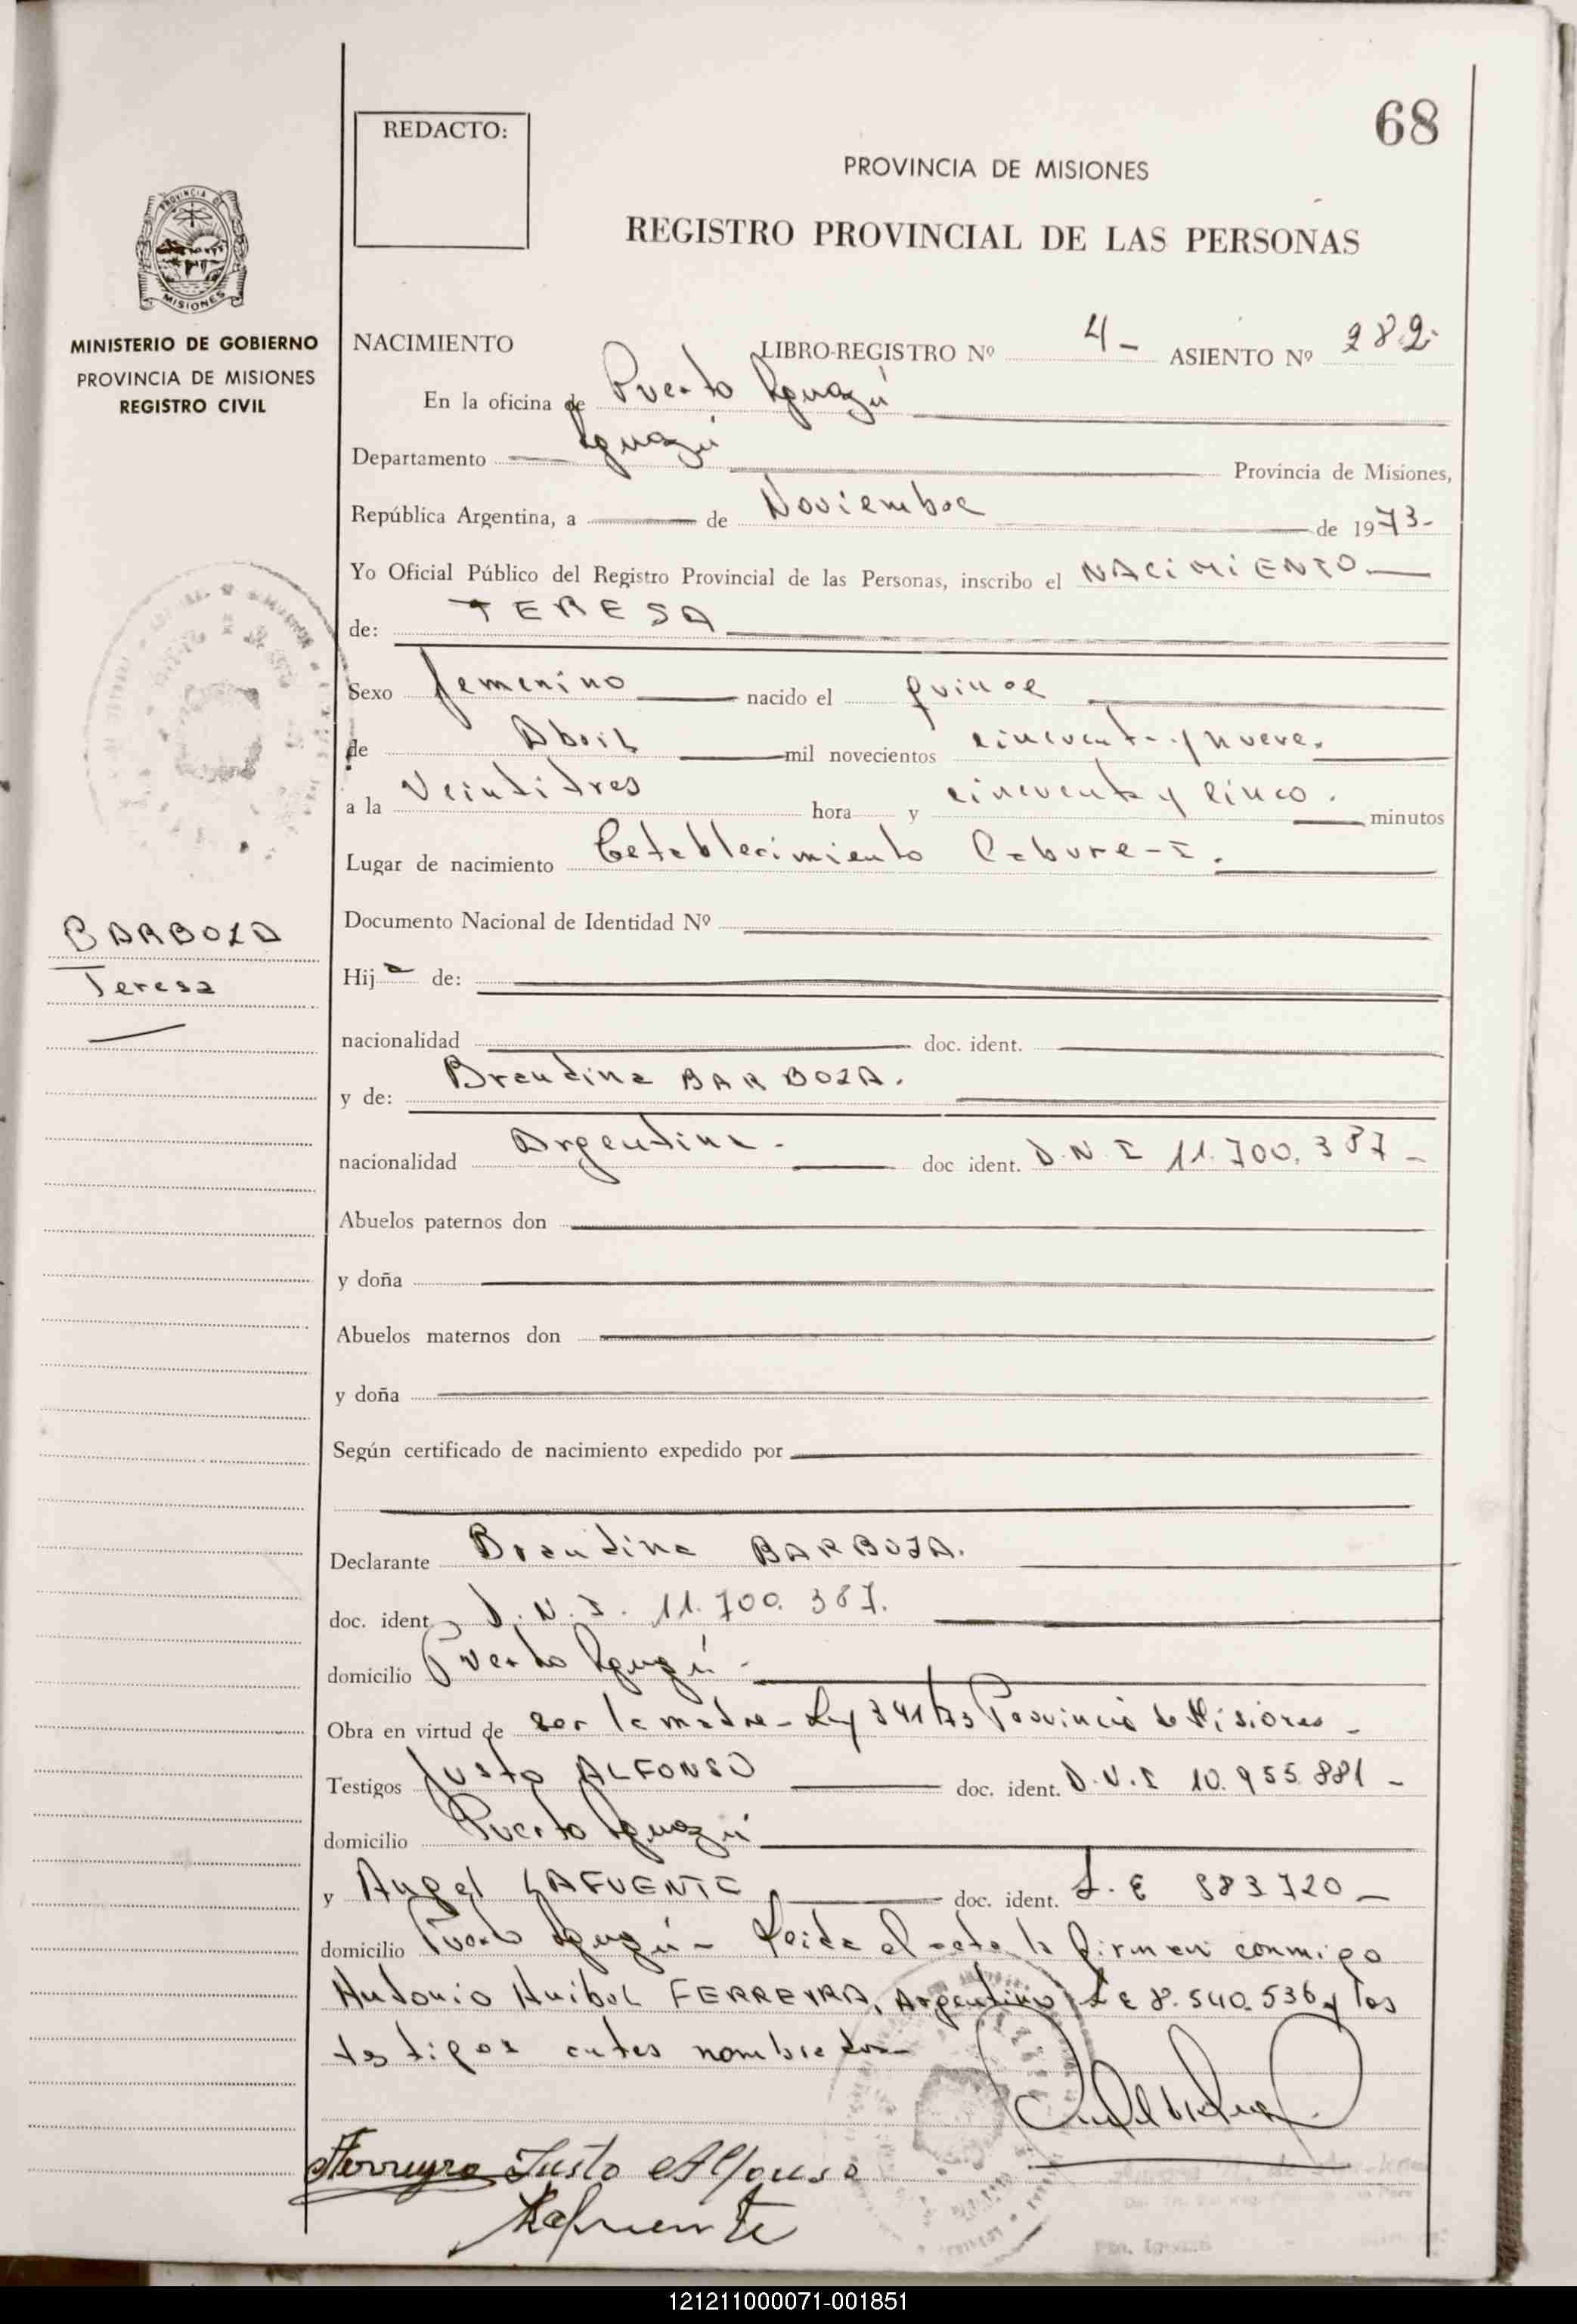 68
REDACTO:
PROVINCIA DE MISIONES
REGISTRO PROVINCIAL DE LAS PERSONAS
PROVINCIA DE
MISIONES
MINISTERIO DE GOBIERNO
PROVINCIA DE MISIONES
REGISTRO CIVIL
NACIMIENTO LIBRO-REGISTRO Nº 4- ASIENTO Nº 282.
En la oficina de Puerto Iguazú
Departamento Iguazú Provincia de Misiones,
República Argentina, a de Noviembre de 1973-
Yo Oficial Público del Registro Provincial de las Personas, inscribo el NACIMIENTO
de: TERESA
Sexo femenino nacido el quince
de Abril mil novecientos cincuenta y nueve.
a la Veintitres hora y cincuenta y cinco. minutos
Lugar de nacimiento Establecimiento Cabure-I.
Documento Nacional de Identidad Nº
BARBOZA
Teresa
Hija de:
nacionalidad doc. ident.
y de: Brandina BARBOZA.
nacionalidad Argentina. doc ident. D.N.I 11.700.387-
Abuelos paternos don
y doña
Abuelos maternos don
y doña
Según certificado de nacimiento expedido por
Declarante Brandina BARBOZA.
doc. ident. D.N.I. 11.700.387.
domicilio Puerto Iguazú-
Obra en virtud de ser la madre- Ley 341/73 Provincia de Misiones-
Testigos Justo ALFONSO doc. ident. D.N.I 10.955.881-
domicilio Puerto Iguazú
y Angel LAFUENTE doc. ident. L.E 983720-
domicilio Puerto Iguazú- Leida el acta la firman conmigo
Antonio Anibal FERREYRA, Argentino L E 8.540.536 y los
testigos antes nombrados-
Ferreyra Justo Alfonso
Lafuente
121211000071-001851